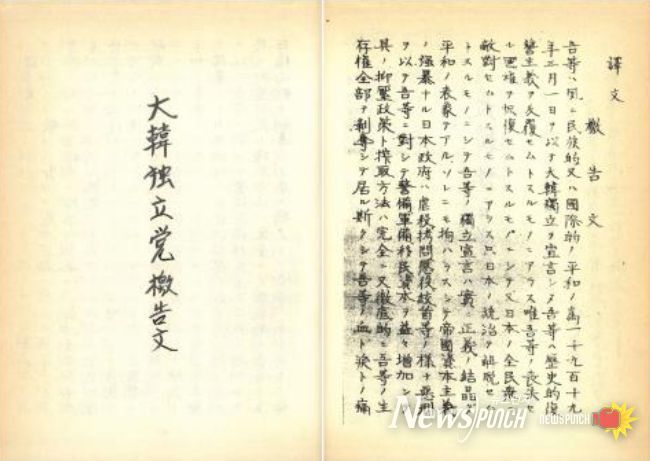 大韓独立党檄告文
譯文
檄告文
吾等ハ夙ニ民族的又ハ國際的ノ平和ノ爲一千九百十九
年三月一日ヲ以テ大韓獨立ヲ宣言シ吾等ハ歴史的復
讐主義ヲ反覆セムトスルモノニアラス唯吾等ノ喪失セ
ヲ恢復セムトスルモノニシテ又日本ノ全民衆ニ
敵對セムトスルモノニアラス只日本ノ統治ヲ離脱セ
トスルモノニシテ吾等ノ獨立宣言ハ實ニ正義ノ結晶
平和ノ表象テアルソレニモ拘ハラスシテ帝國資本主義
ノ強暴ナル日本政府ハ虐殺拷問懲役絞首等ノ様々悪刑
ヲ以テ吾等ニ對シテ警備軍備移民資本ヲ益々増加シ
其ノ抑壓政策ト搾取方法ハ完全ニ又徹底的ニ吾等ノ生
存権全部ヲ剥奪シテ居ル斯クシテ吾等ノ血ト涙トノ痛
NEWSPUNCH
NEWSPUNCH